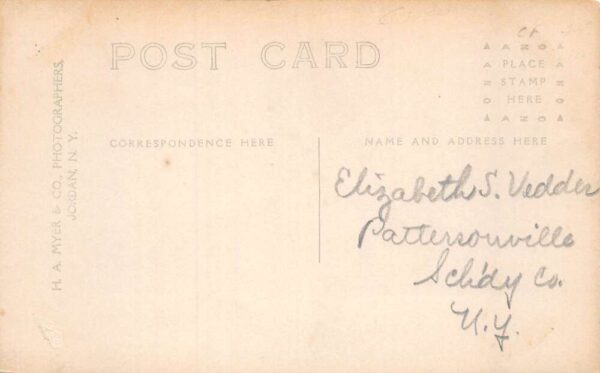 POST CARD
CORRESPONDENCE HERE
NAME AND ADDRESS HERE
AZO
PLACE
STAMP
HERE
AZO
H. A. MYER & CO., PHOTOGRAPHERS,
JORDAN, N. Y.
Elizabeth S. Vedder
Pattersonville
Sch'dy Co.
N.Y.